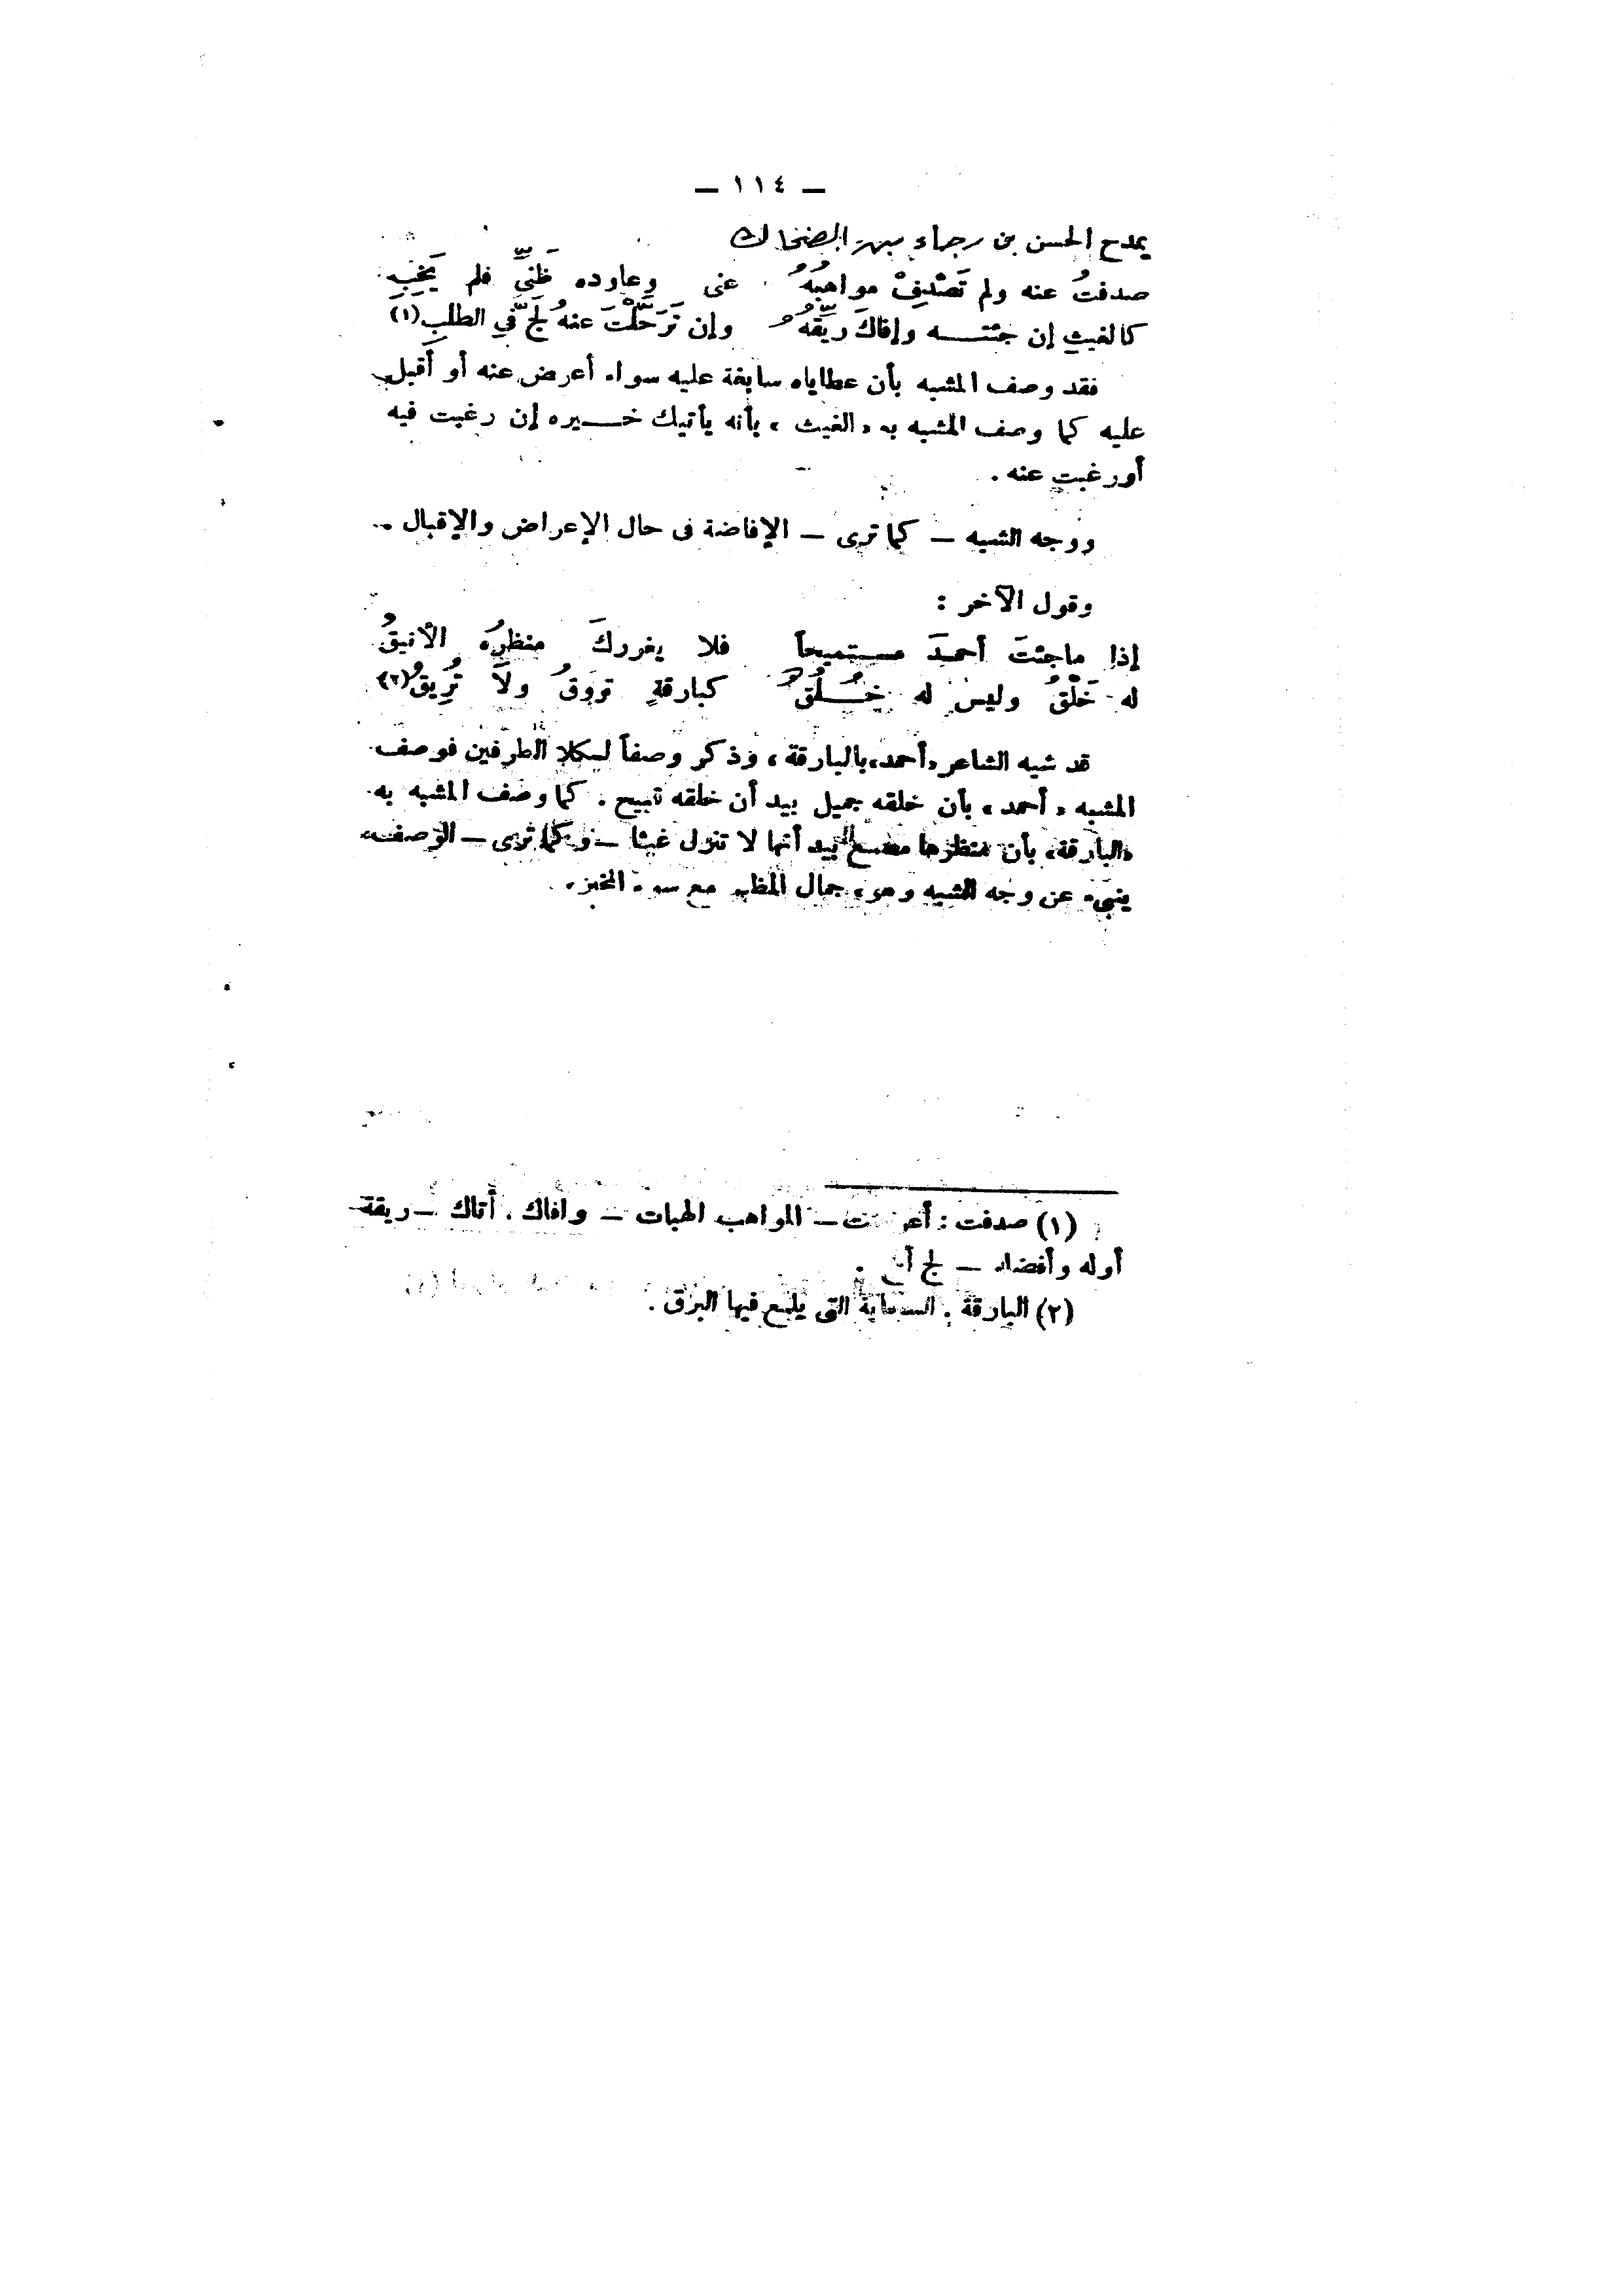 — ١١٤ —
يمدح الحسن بن رجاء بن الضحاك
صدفتُ عنه ولم تَصْدِفْ مواهبُهُ عنى وعاوده ظَنِّى فلم يَخِبِ
كالغيثِ إن جئتــه وافاكَ ريِّقُهُ وإن تَرَحَّلْتَ عنهُ لَجَّ فى الطلبِ (١)
فقد وصف المشبه بأن عطاياه سابغة عليه سواء أعرض عنه أو أقبل
عليه كما وصف المشبه به «الغيث» بأنه يأتيك خــيره إن رغبت فيه
أو رغبت عنه .
ووجه الشبه — كما ترى — الإفاضة فى حال الإعراض والإقبال .
وقول الآخر :
إذا ماجئتَ أحمدَ مستميحاً فلا يغرركَ منظرُه الأنيقُ
له خَلْقُ وليس له خُــلُقُ كبارقةٍ تروقُ ولاَ تُرِيقُ (٢)
قد شبه الشاعر «أحمد» بالبارقة ، وذكر وصفاً لكلا الطرفين فوصف
المشبه «أحمد» بأن خلقه جميل بيد أن خلقه قبيح . كما وصف المشبه به
«البارقة» بأن منظرها بيد أنها لا تنزل غيثا — وكما ترى — الوصف
ينبىء عن وجه الشبه وهو ، جمال المظهر مع سوء المخبر .
(١) صدفت : أعرضت — المواهب الهبات — وافاك . أتاك — ريقة
أوله وأفضله — لج .
(٢) البارقة . السحابة التى يلمع فيها البرق .